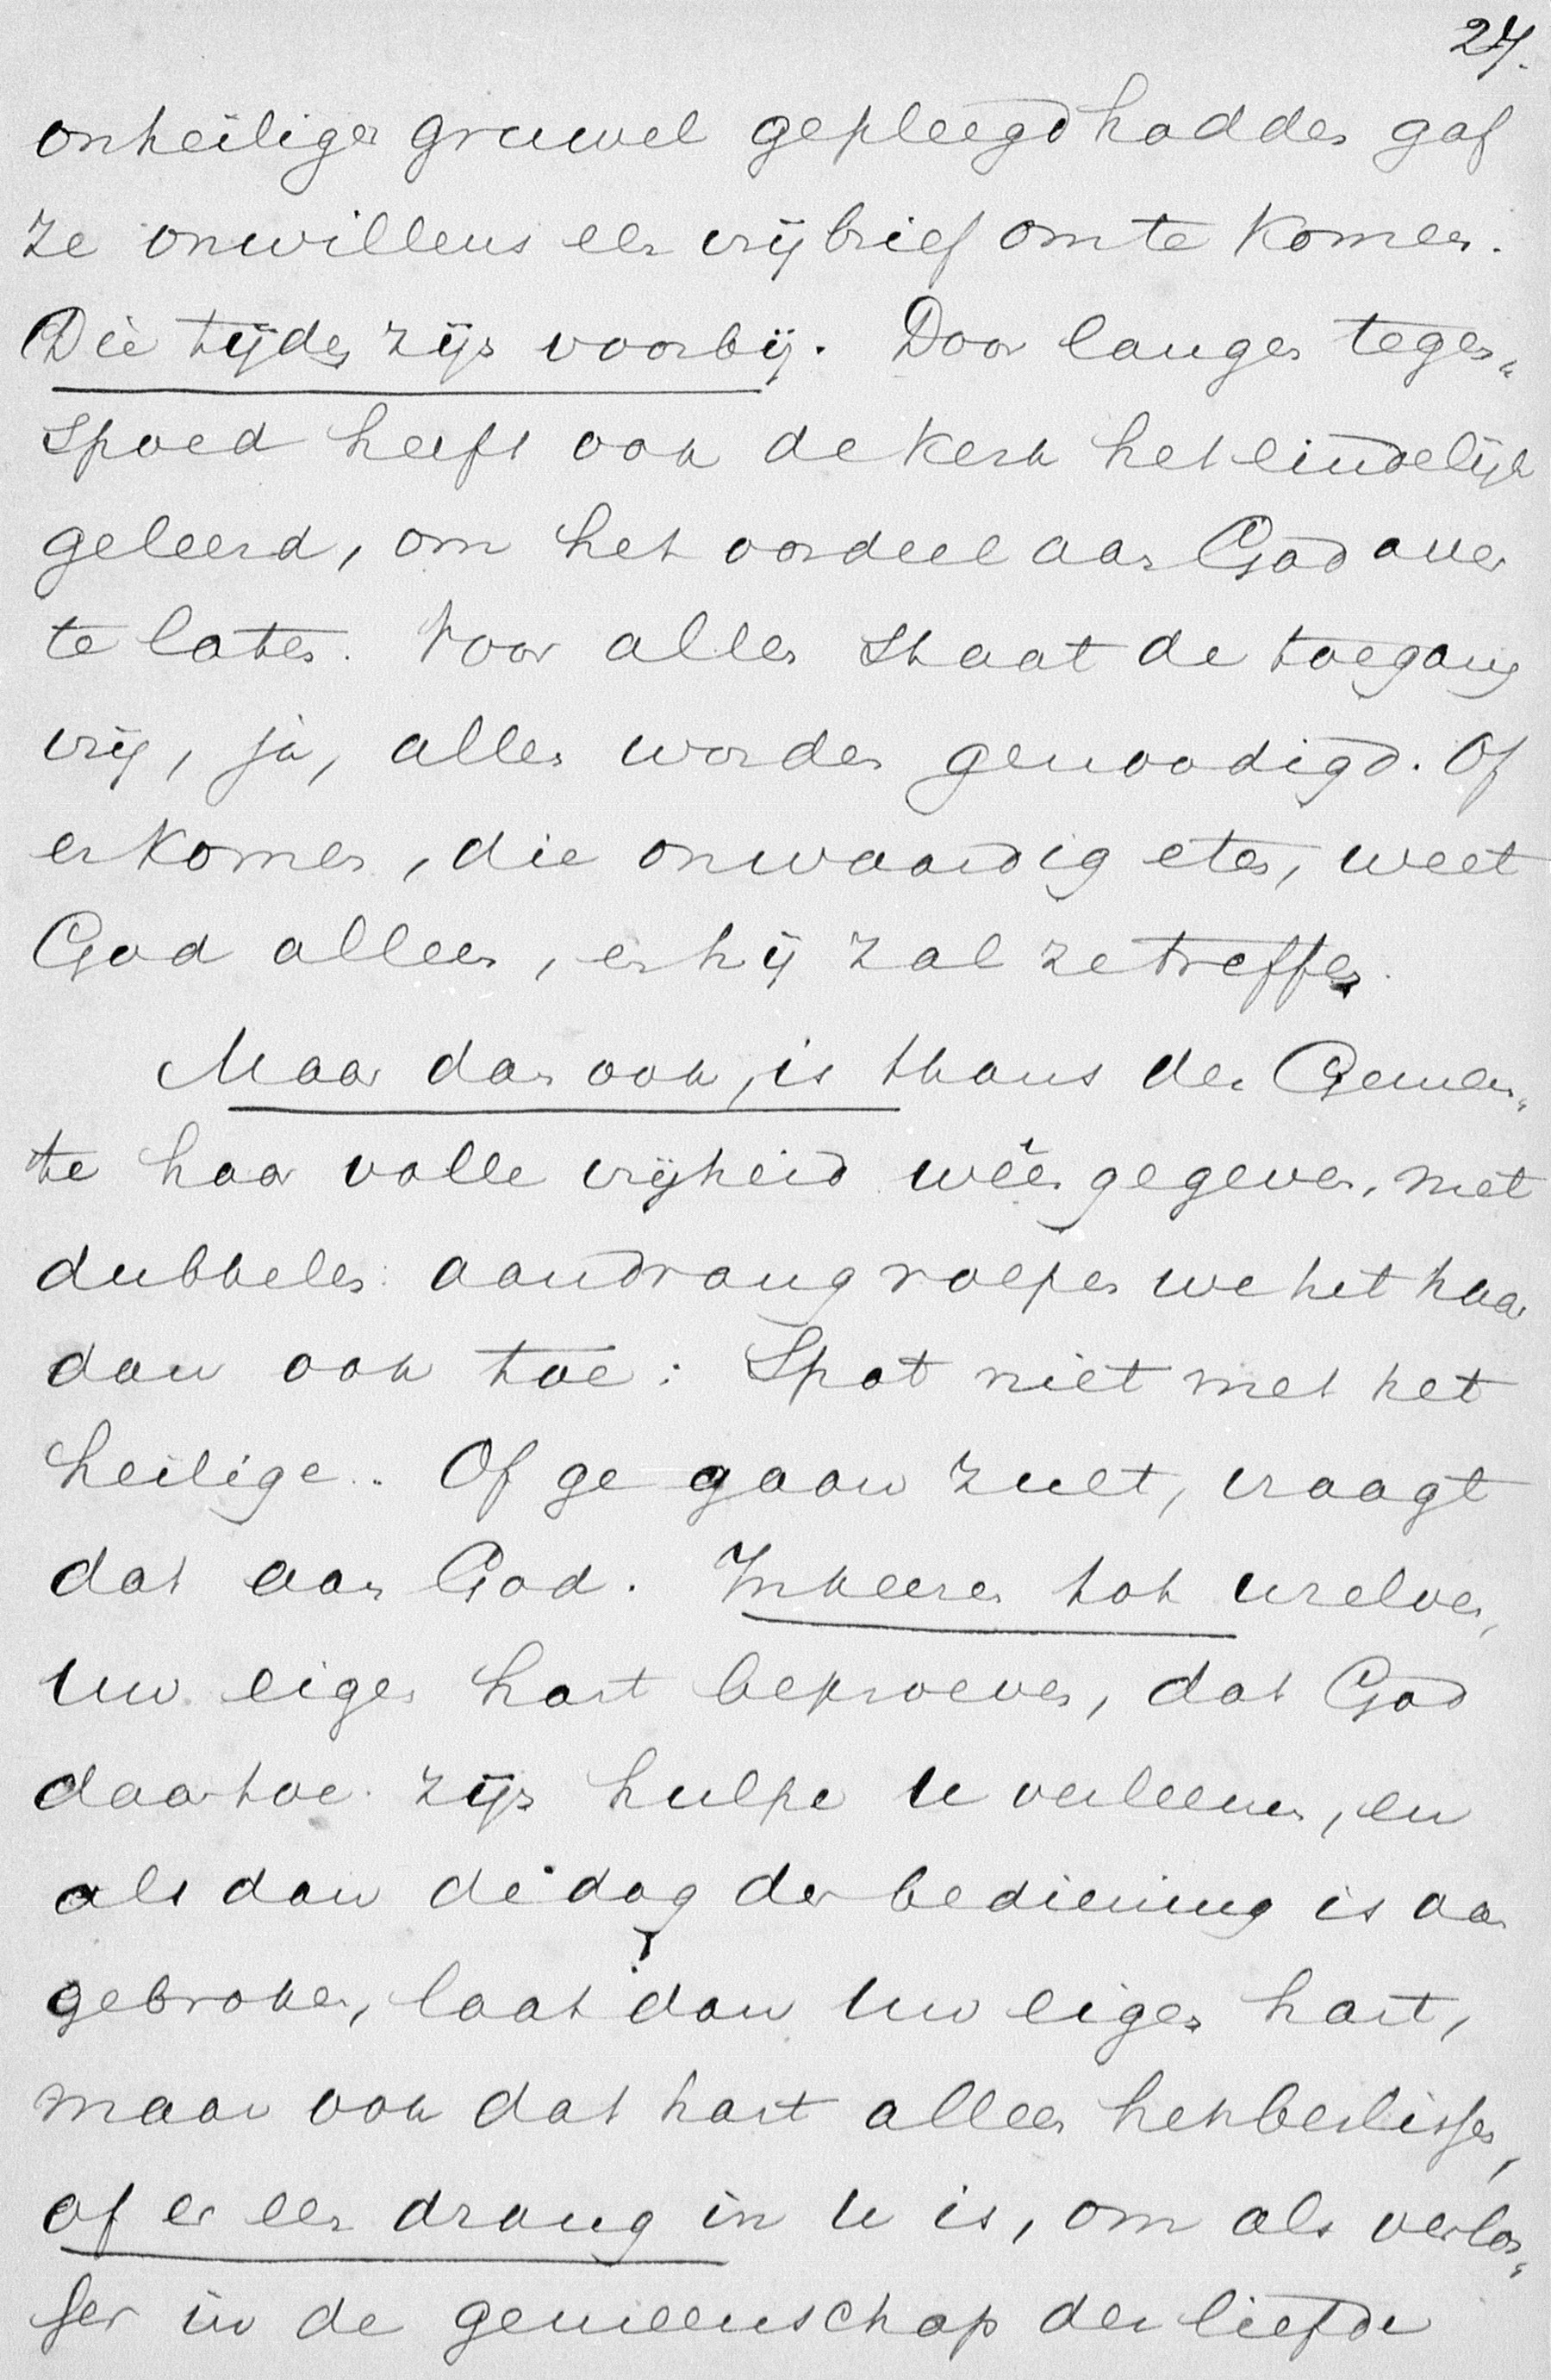 27.
onheiligen gruwel gepleegd hadden gaf
ze onwillens een vrijbrief om te komen.
Die tijden zijn voorbij. Door langen tegen„
spoed heeft ook de kerk het eindelijk
geleerd, om het oordeel aan God over
te laten. Voor allen staat de toegang
vrij, ja, allen worden genoodigd. Of
er komen, die onwaardig eten, weet
God alleen, en hij zal ze treffen.
Maar dan ook, is thans der Gemeen„
te haar volle vrijheid wêergegeven, met
dubbelen aandrang roepen we het haar
dan ook toe: Spot niet met het
heilige. Of ge gaan zult, vraagt
dat aan God. Inkeeren tot uzelven,
uw eigen hart beproeven, dat God
daartoe zijn hulpe u verleene, en
als dan de dag der bediening is aan
gebroken, laat dan uw eigen hart,
maar ook dat hart alleen het beslissen,
of er een drang in u is, om als verlos„
ser in de gemeenschap der liefde